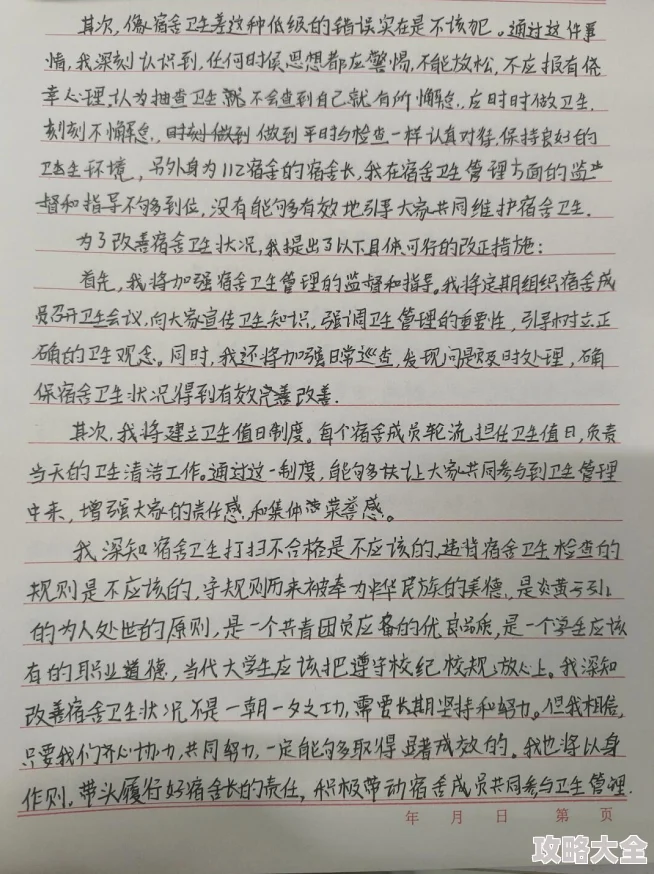 其次,像宿舍卫生差这种低级的错误实在是不该犯。通过这件事
情,我深刻认识到,任何时候思想都应警惕,不能放松,不应报有侥
幸心理,认为抽查卫生就不会查到自己就有所懈怠,应时时做卫生,
刻刻不懈怠,时刻做到做到平时与检查一样认真对待,保持良好的
卫生环境,另外身为112宿舍的宿舍长,我在宿舍卫生管理方面的监
督和指导不够到位,没有能够有效地引导大家共同维护宿舍卫生.
为了改善宿舍卫生状况,我提出了以下具体可行的改正措施:
首先,我将加强宿舍卫生管理的监督和指导。我将定期组织宿舍成
员召开卫生会议,向大家宣传卫生知识,强调卫生管理的重要性,引导树立正
确的卫生观念。同时,我还将加强日常巡查,发现问题及时处理,确
保宿舍卫生状况得到有效完善改善.
其次,我将建立卫生值日制度。每个宿舍成员轮流担任卫生值日,负责
当天的卫生清洁工作。通过这一制度,能够让大家共同参与到卫生管理
中来,增强大家的责任感和集体荣誉感。
我深知宿舍卫生打扫不合格是不应该的,违背宿舍卫生检查的
规则是不应该的,守规则历来被奉为中华民族的美德,是炎黄子孙
的为人处世的原则,是一个共青团员应备的优良品质,是一个学生应该
有的职业道德,当代大学生应该把遵守校纪校规放心上。我深知
改善宿舍卫生状况不是一朝一夕之功,需要长期坚持和努力。但我相信,
只要我们齐心协力,共同努力,一定能够取得显著成效的。我也将以身
作则,带头履行好宿舍长的责任,积极带动宿舍成员共同参与卫生管理.
年 月 日 第 页
攻略大全